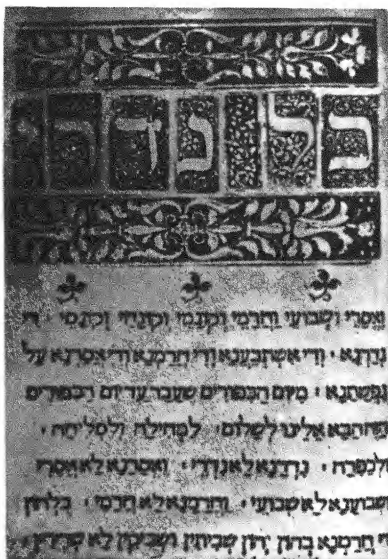 כל נדרי
ואסרי ושבועי וחרמי וקונמי וקונחי וקנסי · די
נדרנא · ודי אשתבענא ודי חרמנא ודי אסרנא על
נפשתנא · מיום הכפורים שעבר עד יום הכפורים
הזה הבא אלינו לשלום · למחילה ולסליחה ·
ולכפרה · נדרנא לא נדרי · ואסרנא לא אסרי
שבוענא לא שבועי · וחרמנא לא חרמי · כלהון
די חרמנא בהון יהון שביתין ושביקין לא שרירין